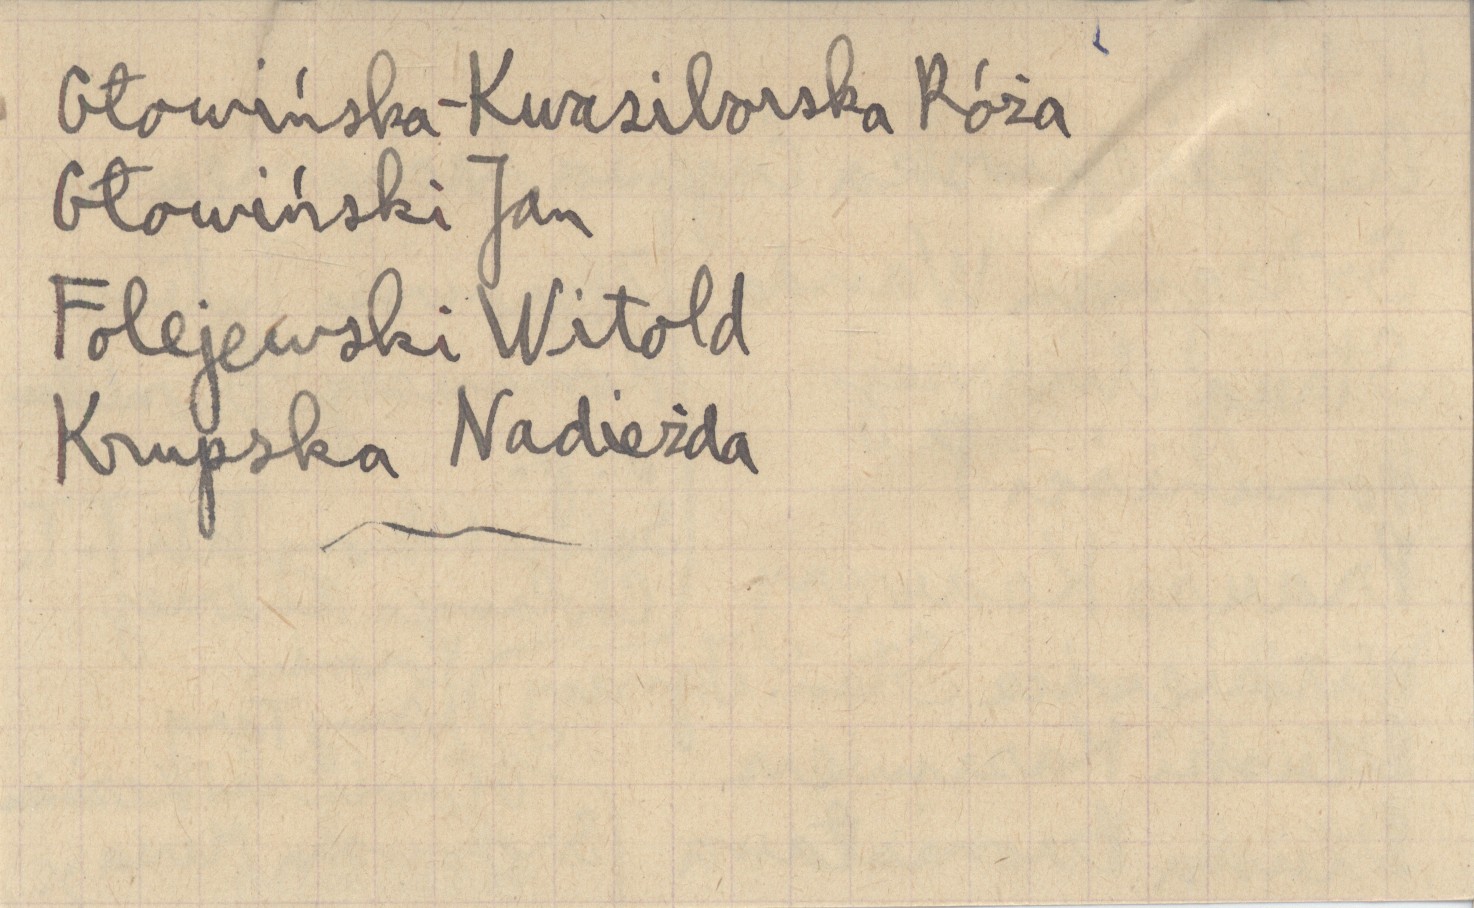 Głowińska-Kwasiborska Róża
Głowiński Jan
Folejewski Witold
Krupska Nadieżda